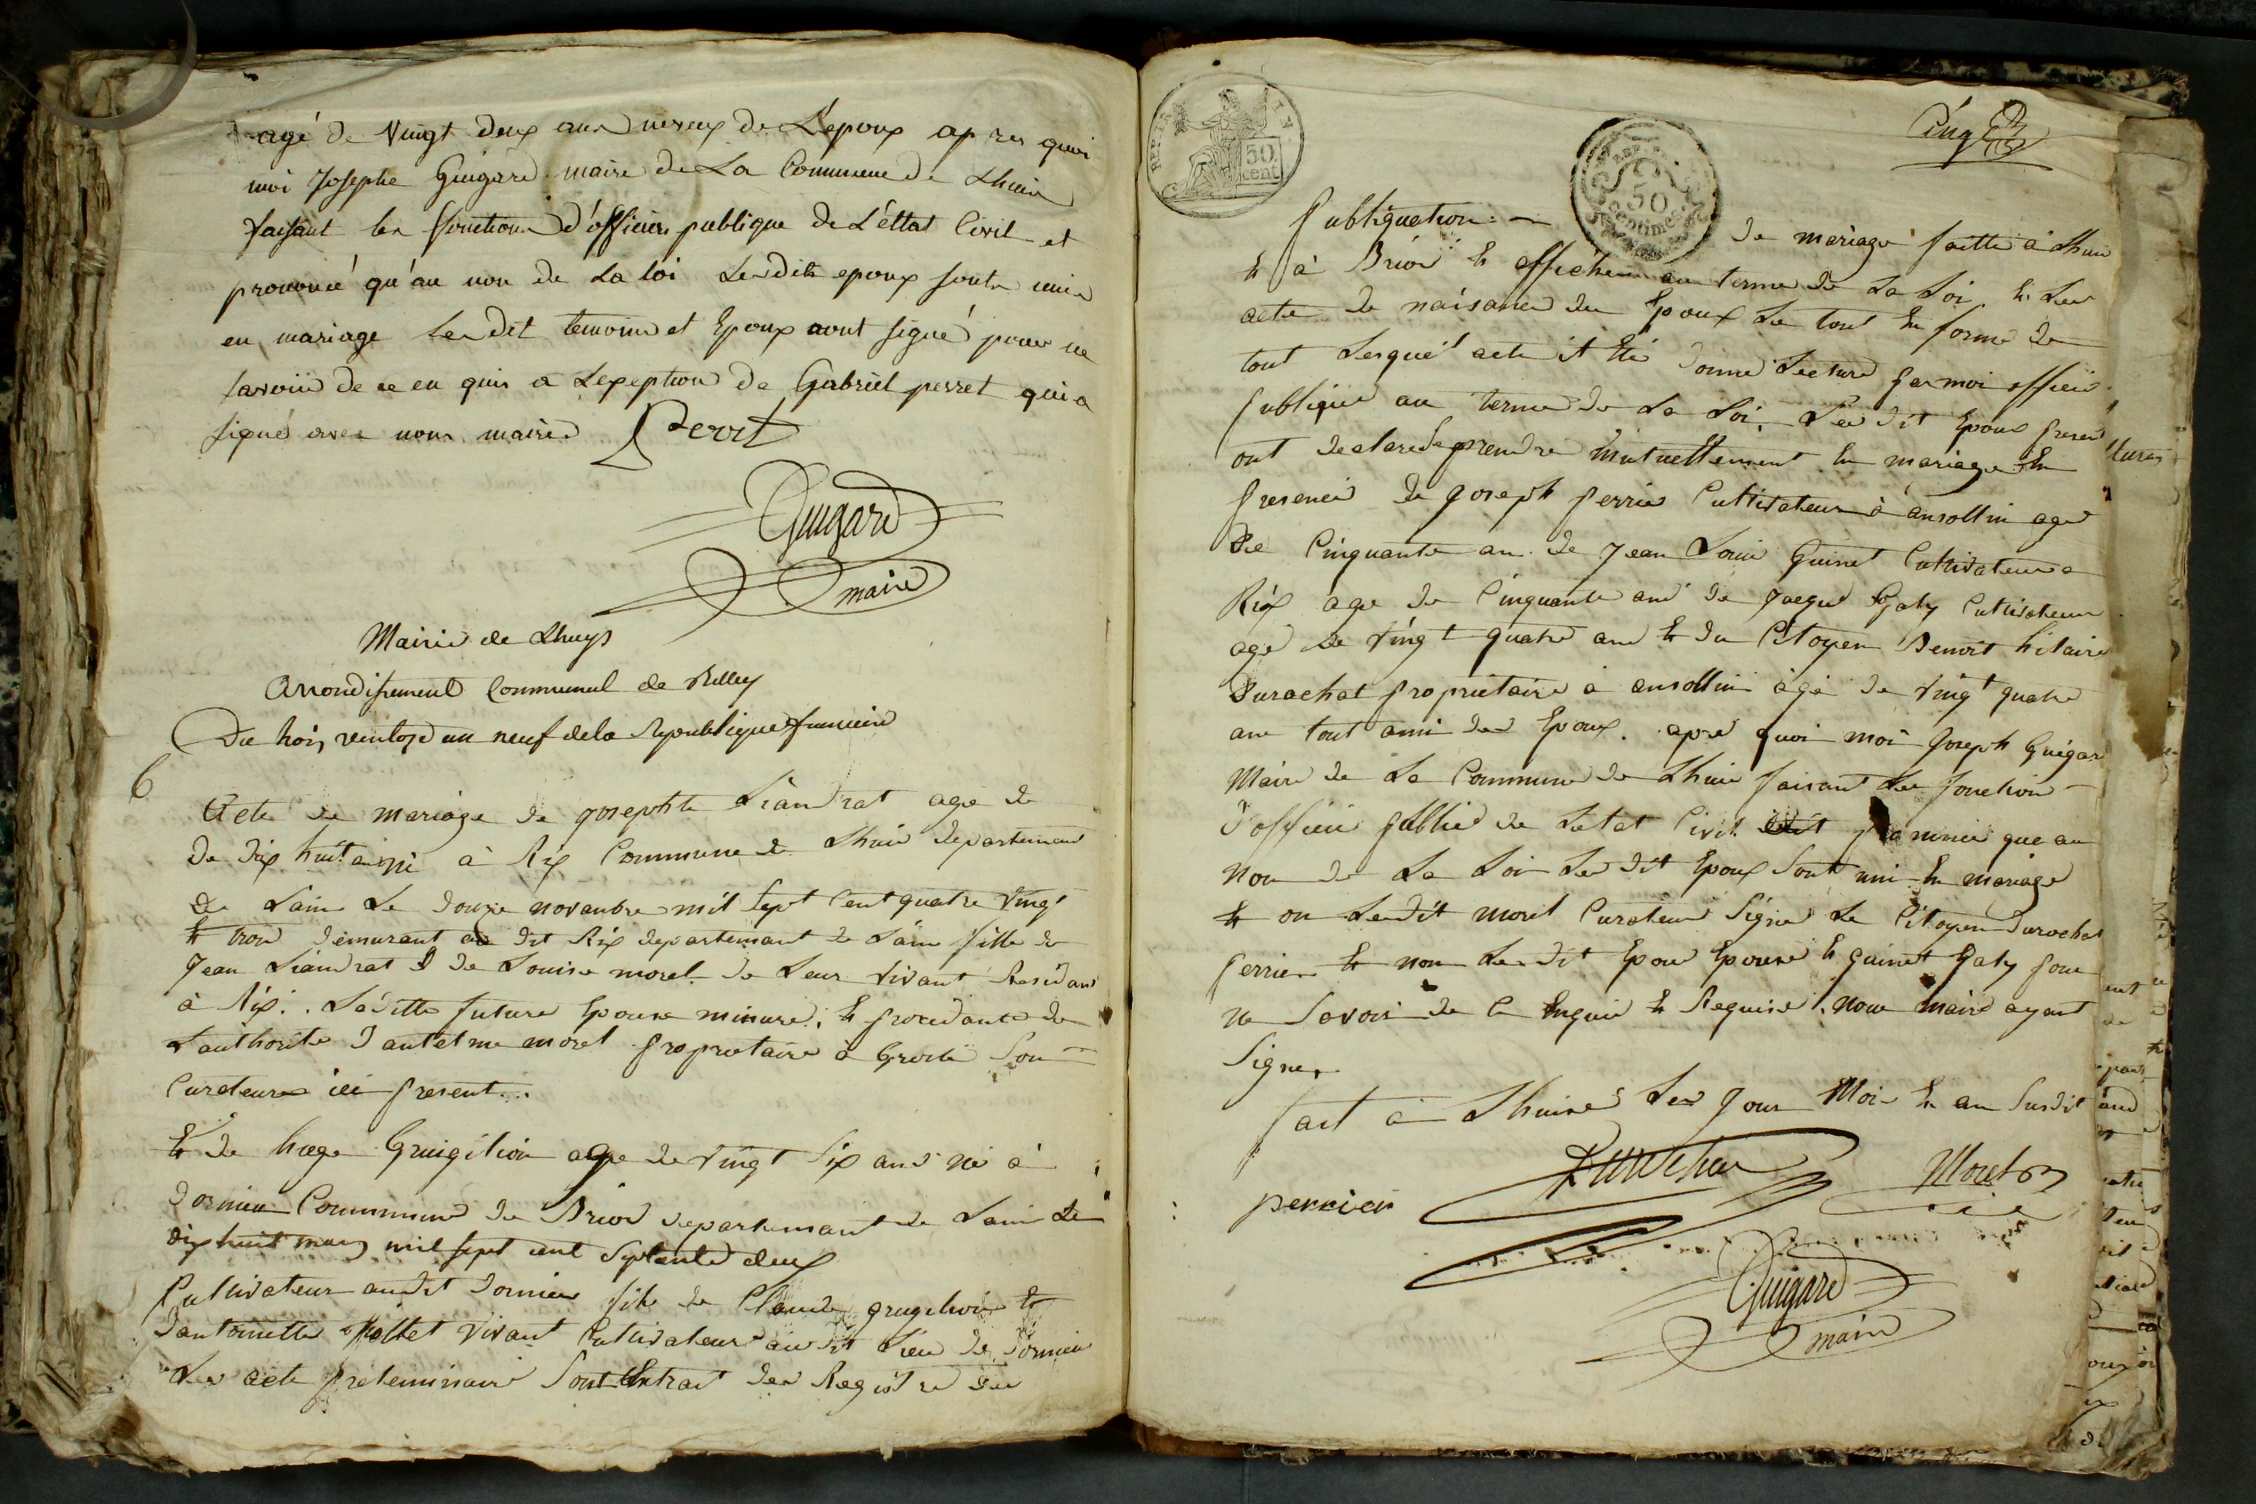 agé de Vingt deux ans neveux de L'epoux apres quoi
moi Josephe Guigard maire de La Commune de Lhuis
faisant les fonctions d'officier publique de L'éttat Civil et
prononcé qu'au non de La loi Lesdits epoux sonts unis
en mariage Lesdit temoins et Epoux nont signé pour ne
savoiir de ce en quis a Lexeption de Gabriel perret qui a
signé avec nous maire Perret
Guigard
maire
Mairie de Lhuys
Arrondissement Communal de Belley
Du trois ventose an neuf de la Republique francaise
6
Acte de mariage de josephte Liandrat age de
de dix huit ans né à Rix Commune de Lhuis departement
de Lain Le douze novanbre mil sept Cent quatre vingt
et trois demurant au dit Rix departemant de Lain fille de
Jean Liandrat & de Louise morel de Leur vivant Residans
à Rix. Laditte future Epouse minure, et procedante de
Lauthorité Dantelme morel proprietaire à Groslé Son
Curateur ici present.
et de Grugilion age de vingt Six ans né à
dornieu Commune de Brior departemant de Lain Le
dix huit mars mil sept cent septante deux
Cultivateur audit dornieu fils de Claude grugilion et
dantoinette vivant Cultivateur audit Lieu de dornieu
Les acte preliminaire Sont Extrait des Registre des
Cinq
REP. FRA. 50 cent.
REP. 50 centimes
Publiquation de mariage faitte à Lhuis
et à Brior et affichée au terme de La Loi, et Les
acte de naisance des Epoux Le tout en forme de
tout Lesquel acte it Eté donné Lecture par moi officié
publique au terme de La Loi. Les dit Epoux presen
ont declaré Se prendre mutuellement En mariage En
presence de joseph perrier Cultivateur à ansollin age
de Cinquante an. de Jean Louis Guinet Cultivateur a
Rix age de Cinquante ans de Jaque Galy Cultivateur
agé de vingt quatre ans et du Citoyen Benoit hilaire
Durochat proprietaire à ansollin agé de vingt quatre
ans tout ami des Epoux. apré quoi moi Joseph Guigar
Maire de La Commune de Lhuis faisant Les fonction
d'officié public de Letat Civil pronnoncé que au
Non de La Loi Les dit Epoux Sont uni En mariage
et on Ledit morel Curateur Signé Le Citoyen Durochat
perrier et non Les dit Epou Epouse et guinet Galy pour
ne Savoir de ce Enquis et Requise. nous maire ayant
Signer
fait à Lhuis Les Jour Moi et an Susdit
perrier Durochat Morel
Guigard
maire